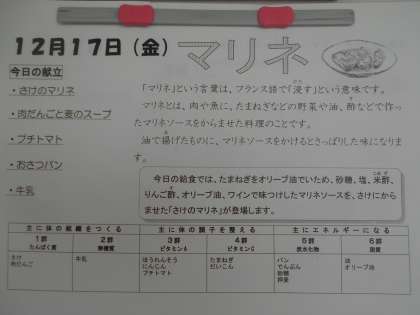 12月17日(金)マリネ
今日の献立
・さけのマリネ
・肉だんごと麦のスープ
・プチトマト
・おさつパン
・牛乳
「マリネ」という言葉は、フランス語で「浸す」という意味です。
マリネとは、肉や魚に、たまねぎなどの野菜や油、酢などで作っ
たマリネソースをからませた料理のことです。
油で揚げたものに、マリネソースをかけるとさっぱりした味になりま
す。
今日の給食では、たまねぎをオリーブ油でいため、砂糖、塩、米酢、
りんご酢、オリーブ油、ワインで味つけしたマリネソースを、さけにから
ませた「さけのマリネ」が登場します。
主に体の組織をつくる 主に体の調子を整える 主にエネルギーになる
1群 2群 3群 4群 5群 6群
たんぱく質 無機質 ビタミンA ビタミンC 炭水化物 脂質
さけ 牛乳 ほうれんそう たまねぎ パン 油
肉だんご にんじん だいこん でんぷん オリーブ油
プチトマト 砂糖
押麦